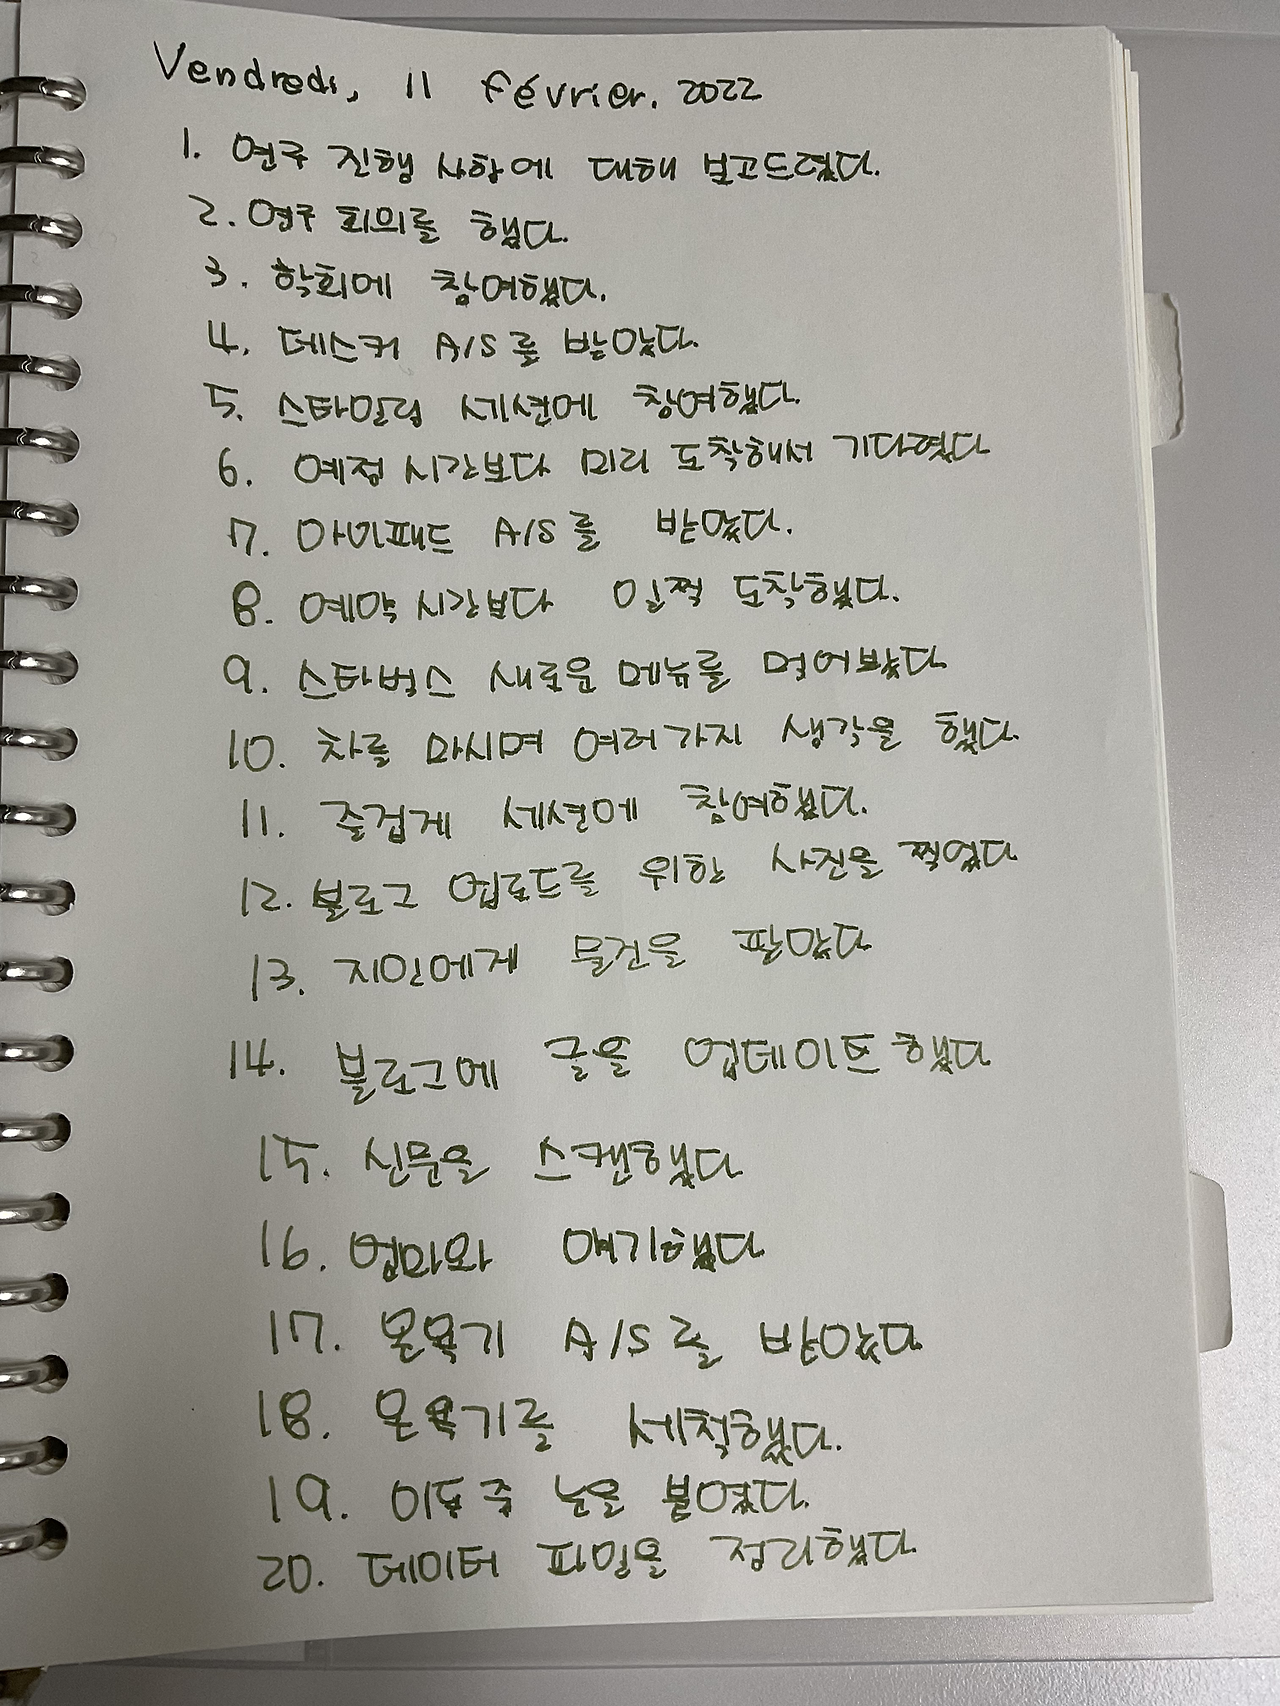 Vendredi, 11 février. 2022
1. 연구 진행 사항에 대해 보고드렸다.
2. 연구 회의를 했다.
3. 학회에 참여했다.
4. 데스커 A/S를 받았다.
5. 스타일링 세션에 참여했다.
6. 예정 시간보다 미리 도착해서 기다렸다
7. 아이패드 A/S를 받았다.
8. 예약 시간보다 일찍 도착했다.
9. 스타벅스 새로운 메뉴를 먹어봤다
10. 차를 마시며 여러가지 생각을 했다.
11. 즐겁게 세션에 참여했다.
12. 블로그 업로드를 위한 사진을 찍었다
13. 지인에게 물건을 팔았다
14. 블로그에 글을 업데이트했다
15. 신문을 스캔했다
16. 엄마와 얘기했다
17. 온욕기 A/S를 받았다
18. 온욕기를 세척했다.
19. 이동 중 눈을 붙였다.
20. 데이터 파일을 정리했다.